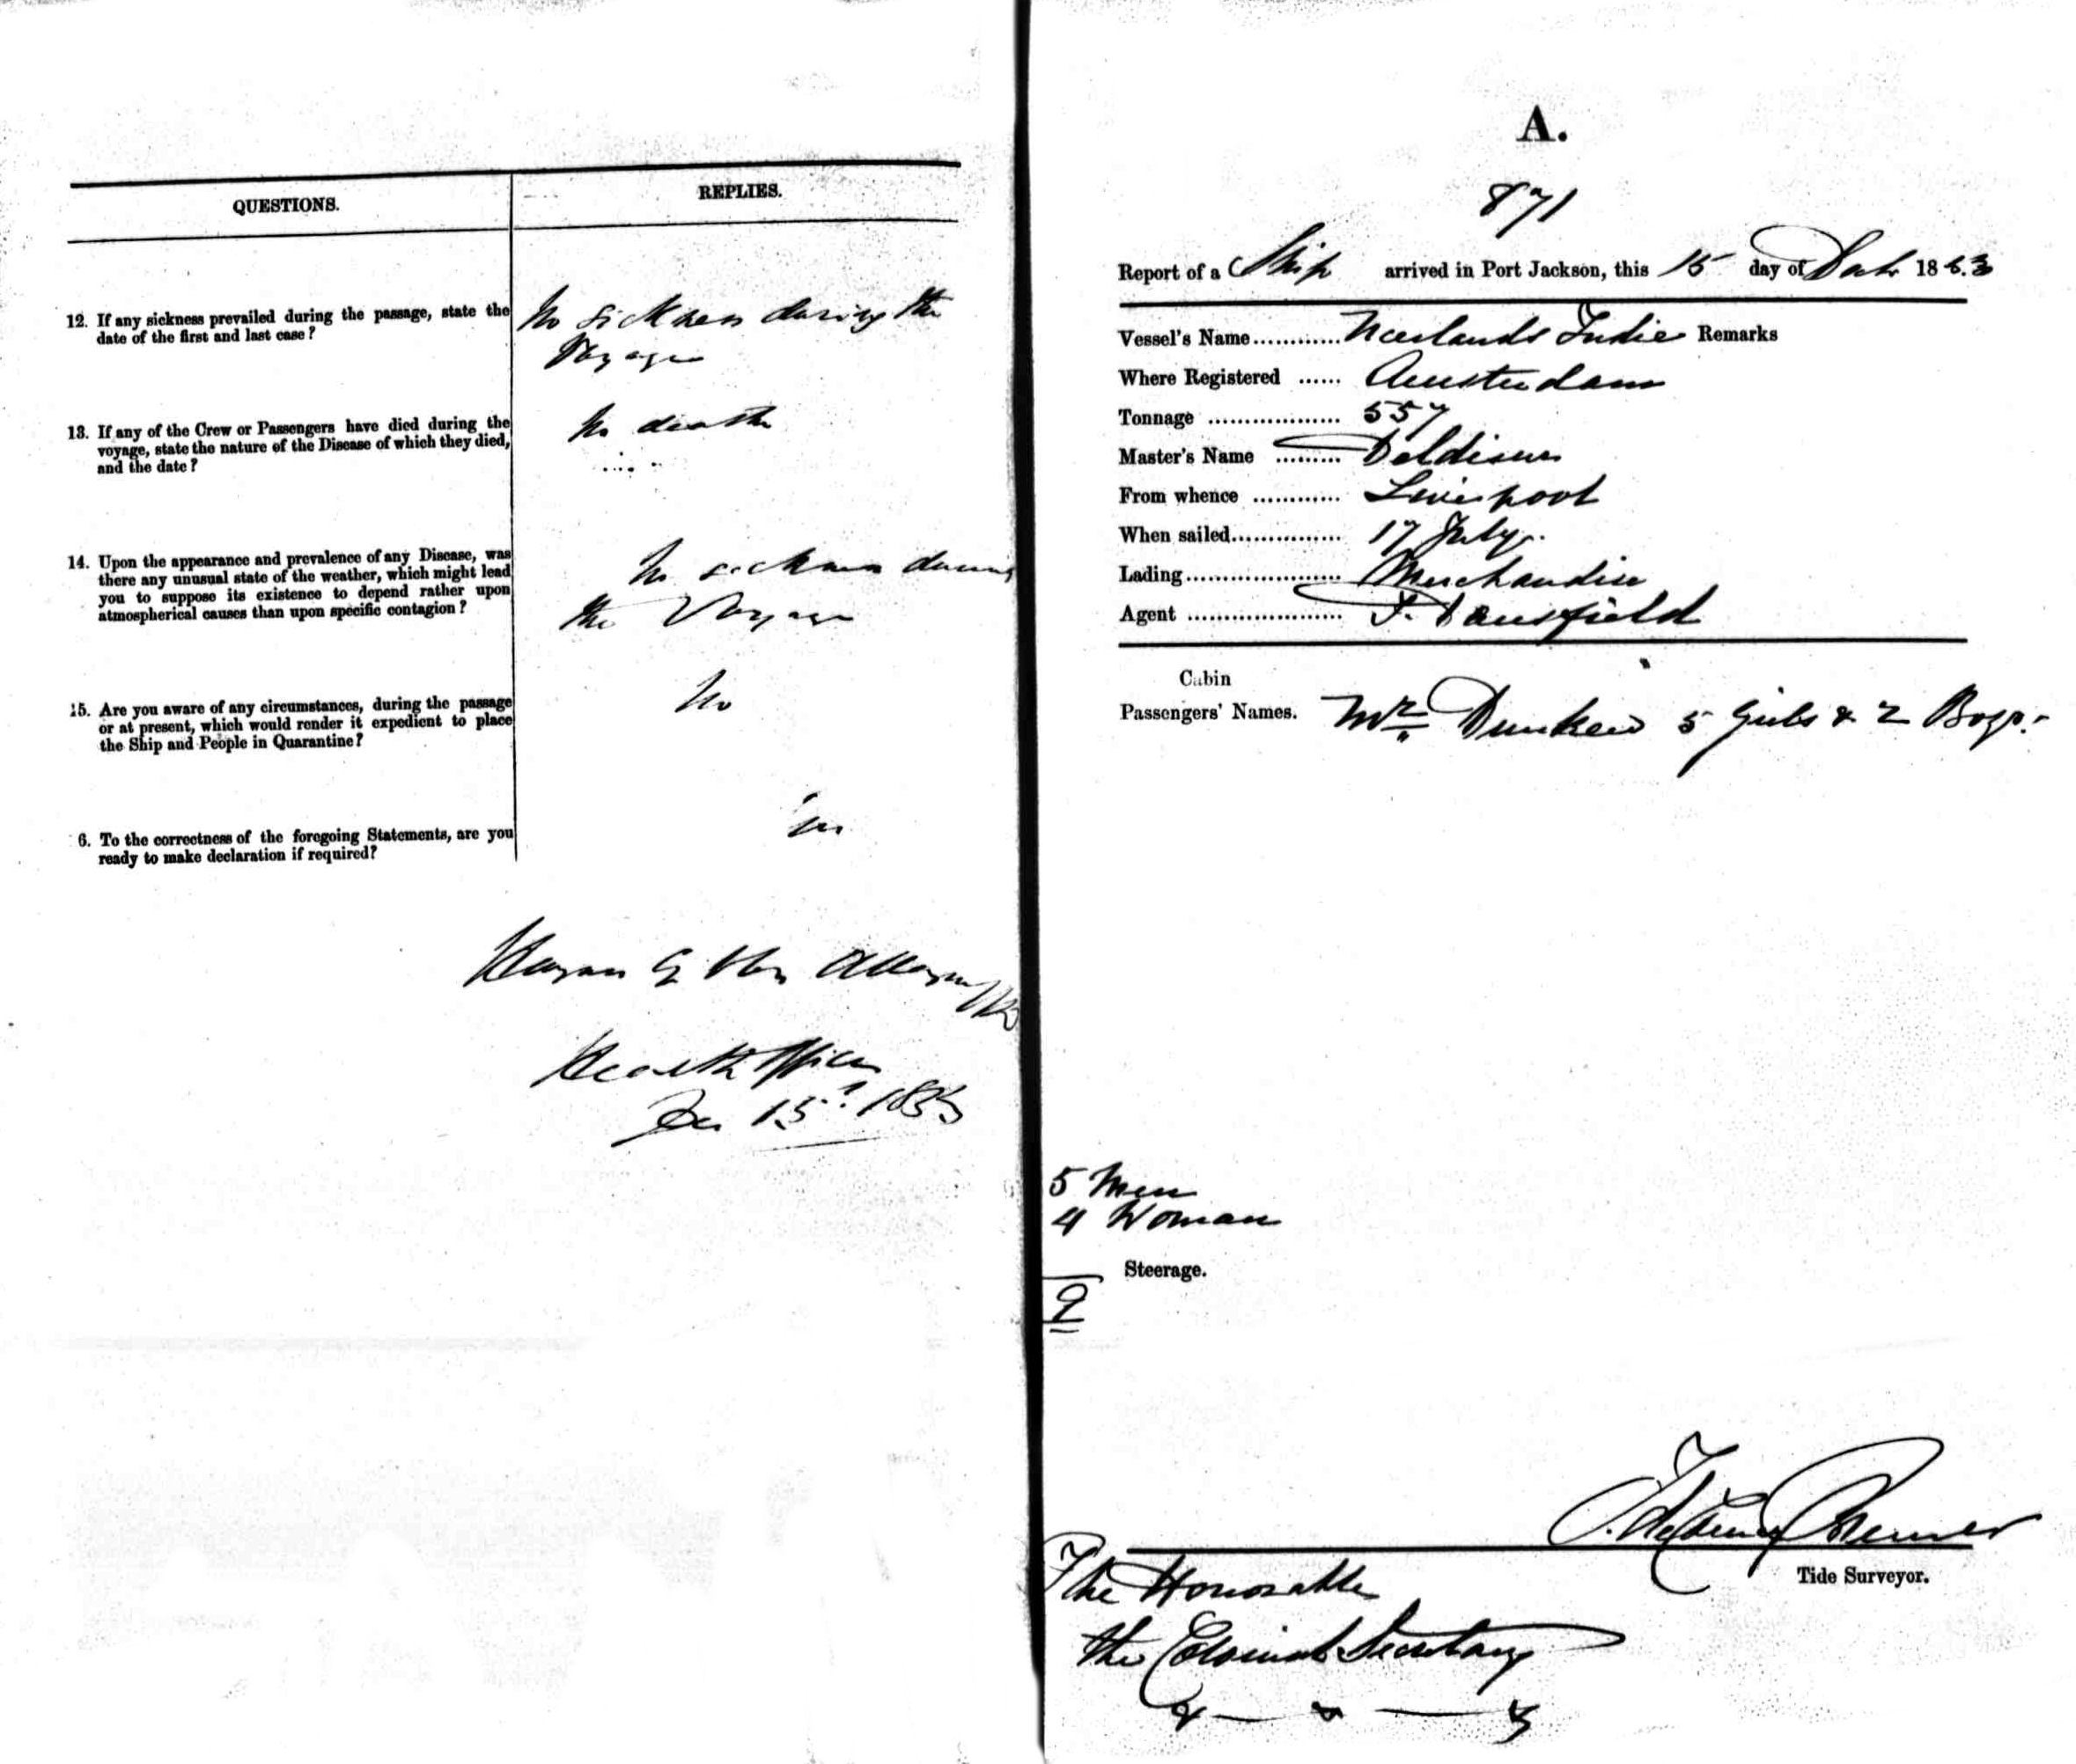 QUESTIONS.
REPLIES.
12. If any sickness prevailed during the passage, state the
date of the first and last case?
No sickness during the
Voyage
13. If any of the Crew or Passengers have died during the
voyage, state the nature of the Disease of which they died,
and the date?
No death
14. Upon the appearance and prevalence of any Disease, was
there any unusual state of the weather, which might lead
you to suppose its existence to depend rather upon
atmospherical causes than upon specific contagion?
No sickness during
the Voyage
15. Are you aware of any circumstances, during the passage
or at present, which would render it expedient to place
the Ship and People in Quarantine?
No
6. To the correctness of the foregoing Statements, are you
ready to make declaration if required?
Health Officer
Dec 15th 1853
A.
871
Report of a Ship arrived in Port Jackson, this 15 day of 185.3
Vessel's Name............ Neerlands Indie Remarks
Where Registered ...... Amsterdam
Tonnage .................. 557
Master's Name .........
From whence ............ Liverpool
When sailed............... 17 July.
Lading..................... Merchandise
Agent .....................
Cabin
Passengers' Names. Mr Dunker 5 Girls & 2 Boys.
5 Men
4 Woman
Steerage.
9
Tide Surveyor.
The Honorable
the Colonial Secretary